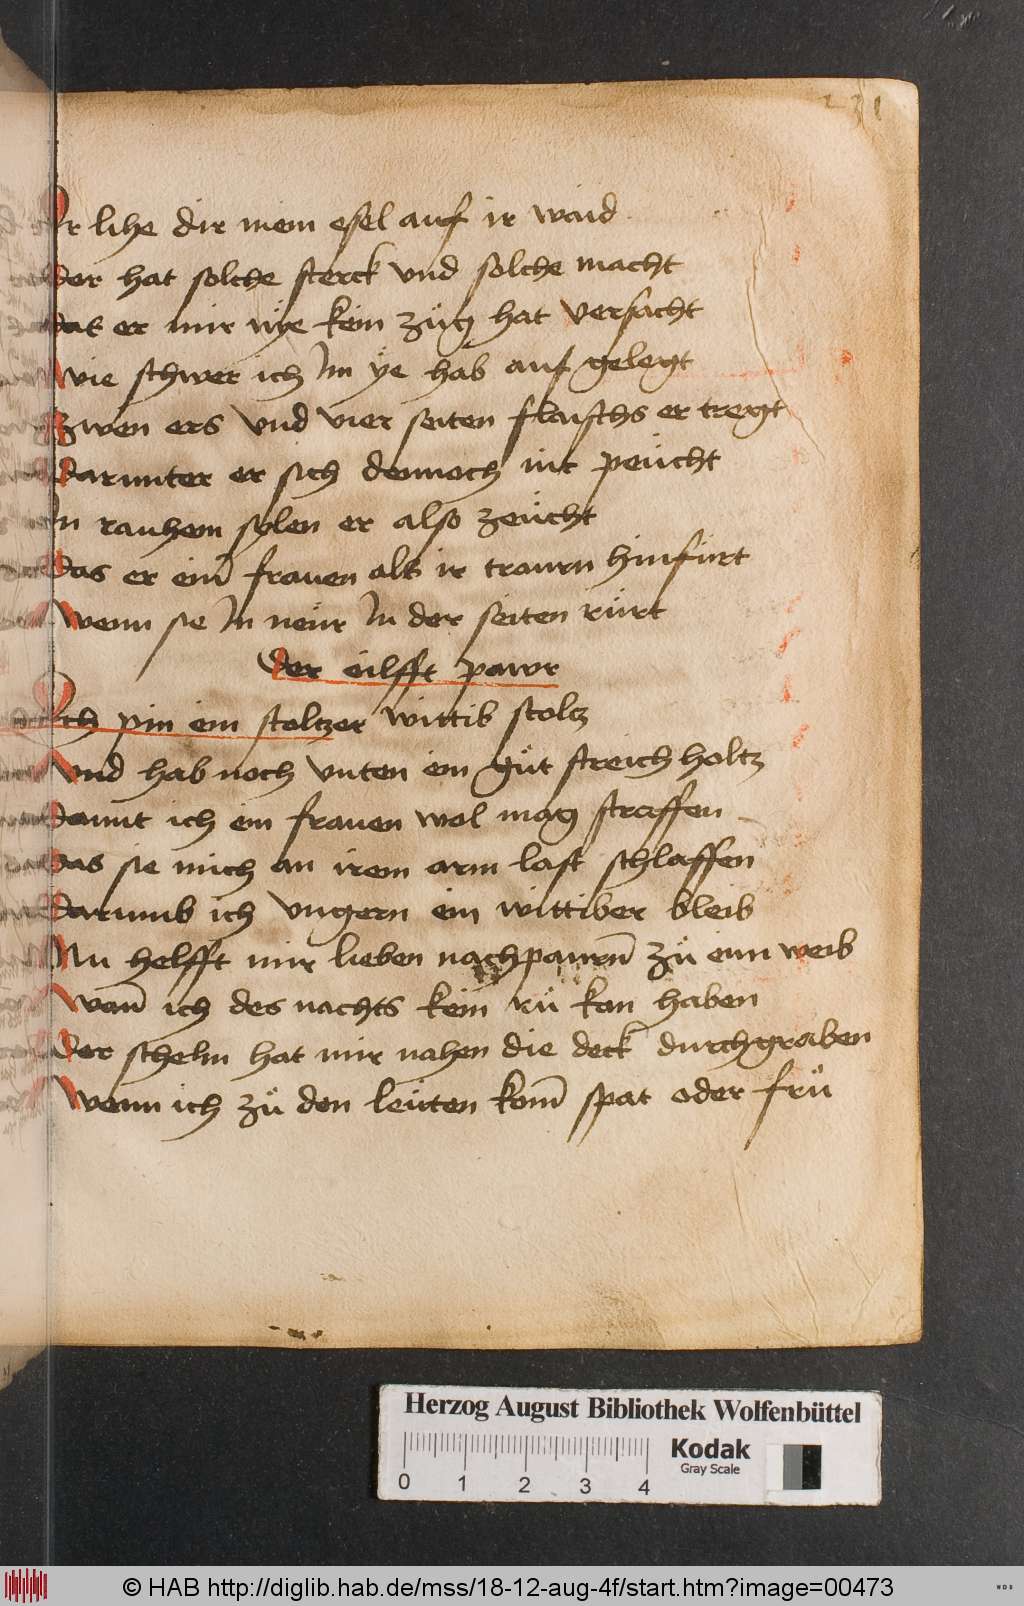 231
Er lihe dir mein esel auf ir waid
der hat solche sterck vnd solche macht
das er mir nÿe kein züg hat versacht
wie schwer ich Im ÿe hab auf gelegt
Zwen ers vnd vier seiten flaischs er tregt
darunter er sich dennoch nit peücht
In rauhem solen er also zeücht
das er eim̄ frauen als ir traurn hinfürt
wenn sie In neür In der seiten rürt
der eilfft pawr
Ich pin ein stoltzer wittib stolz
vnd hab noch vnten ein güt streich holtz
damit ich ein frauen wol mag straffen
das sie mich an irem arm last schlaffen
darumb ich vngern ein wittiber bleib
Nu helfft mir lieben nachpaurn̄ zü einn weib
wan̄ ich des nachts kein rü kan haben
der schelm hat mir nahen die deck durchgraben
wenn ich zü den leüten kom̄ spat oder frü
Herzog August Bibliothek Wolfenbüttel
0 1 2 3 4
Kodak
Gray Scale
© HAB http://diglib.hab.de/mss/18-12-aug-4f/start.htm?image=00473